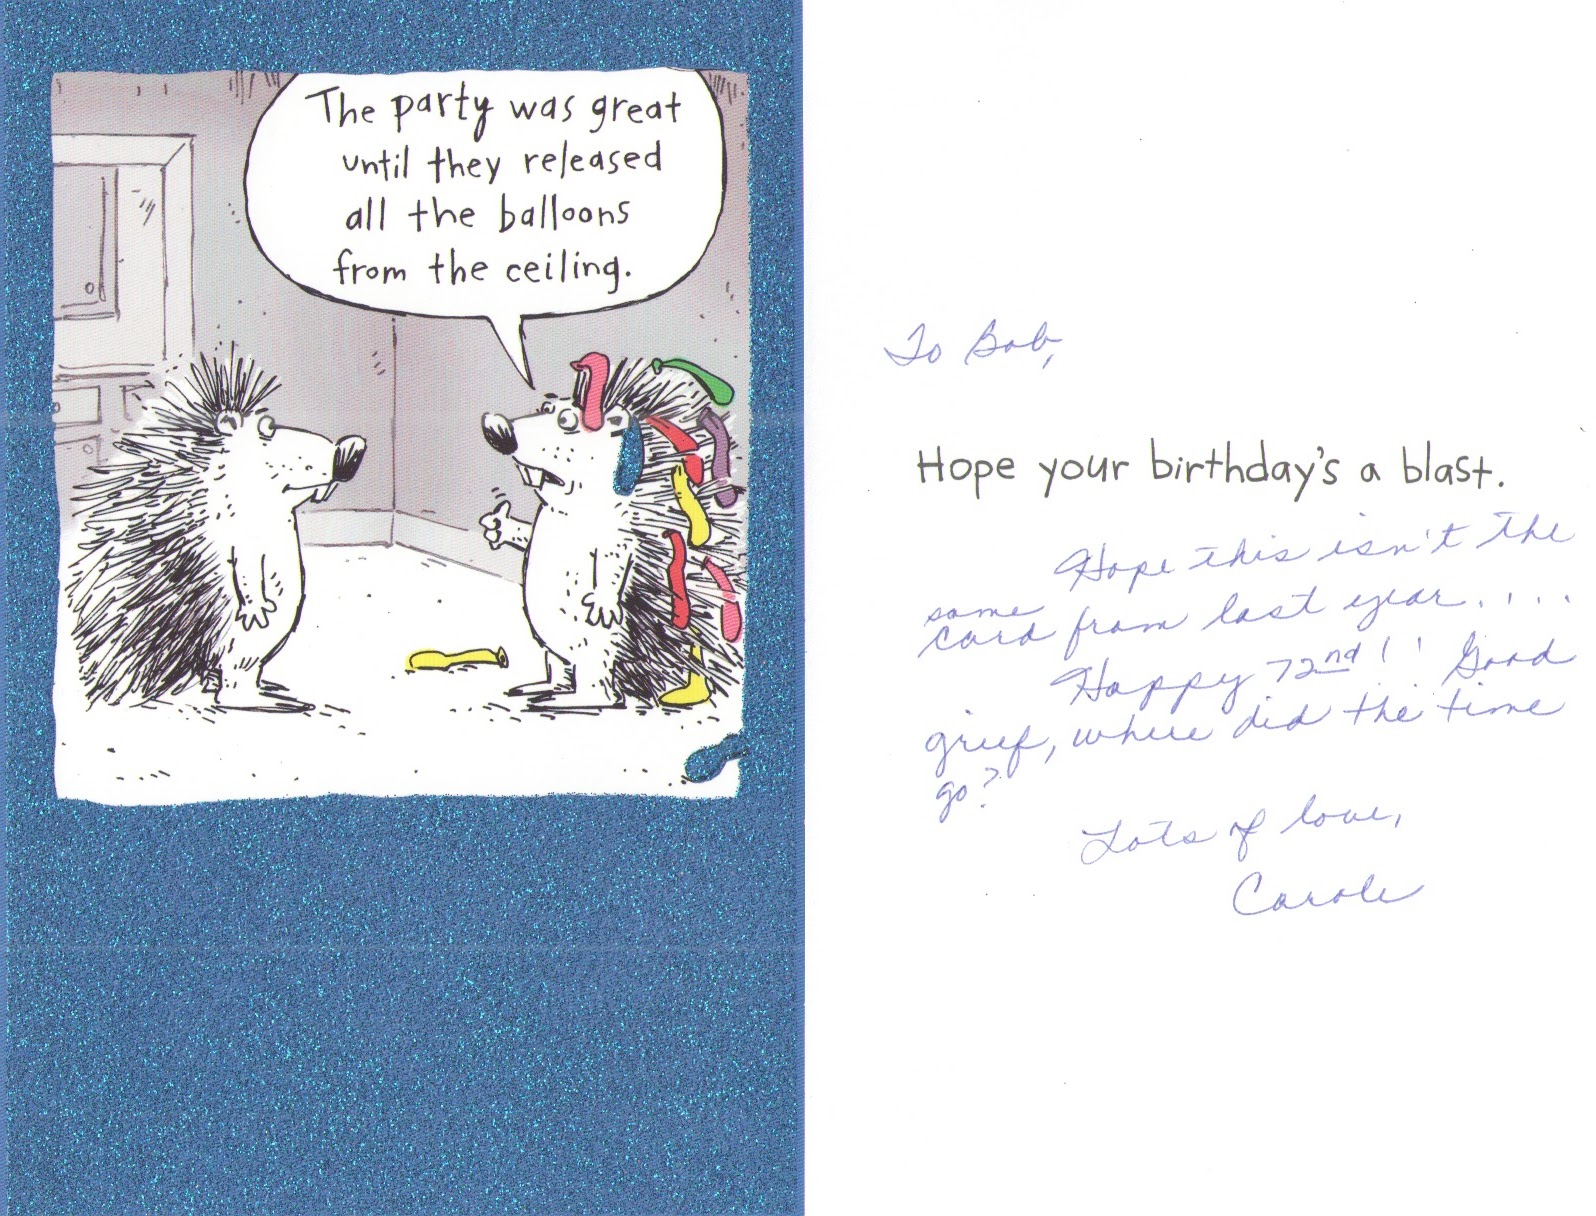 The party was great
until they released
all the balloons
from the ceiling.
To Bob,
Hope your birthday's a blast.
Hope this isn't the
same
card from last year.....
Happy 72nd!! Good
grief, where did the time
go?
Lots of love,
Carole